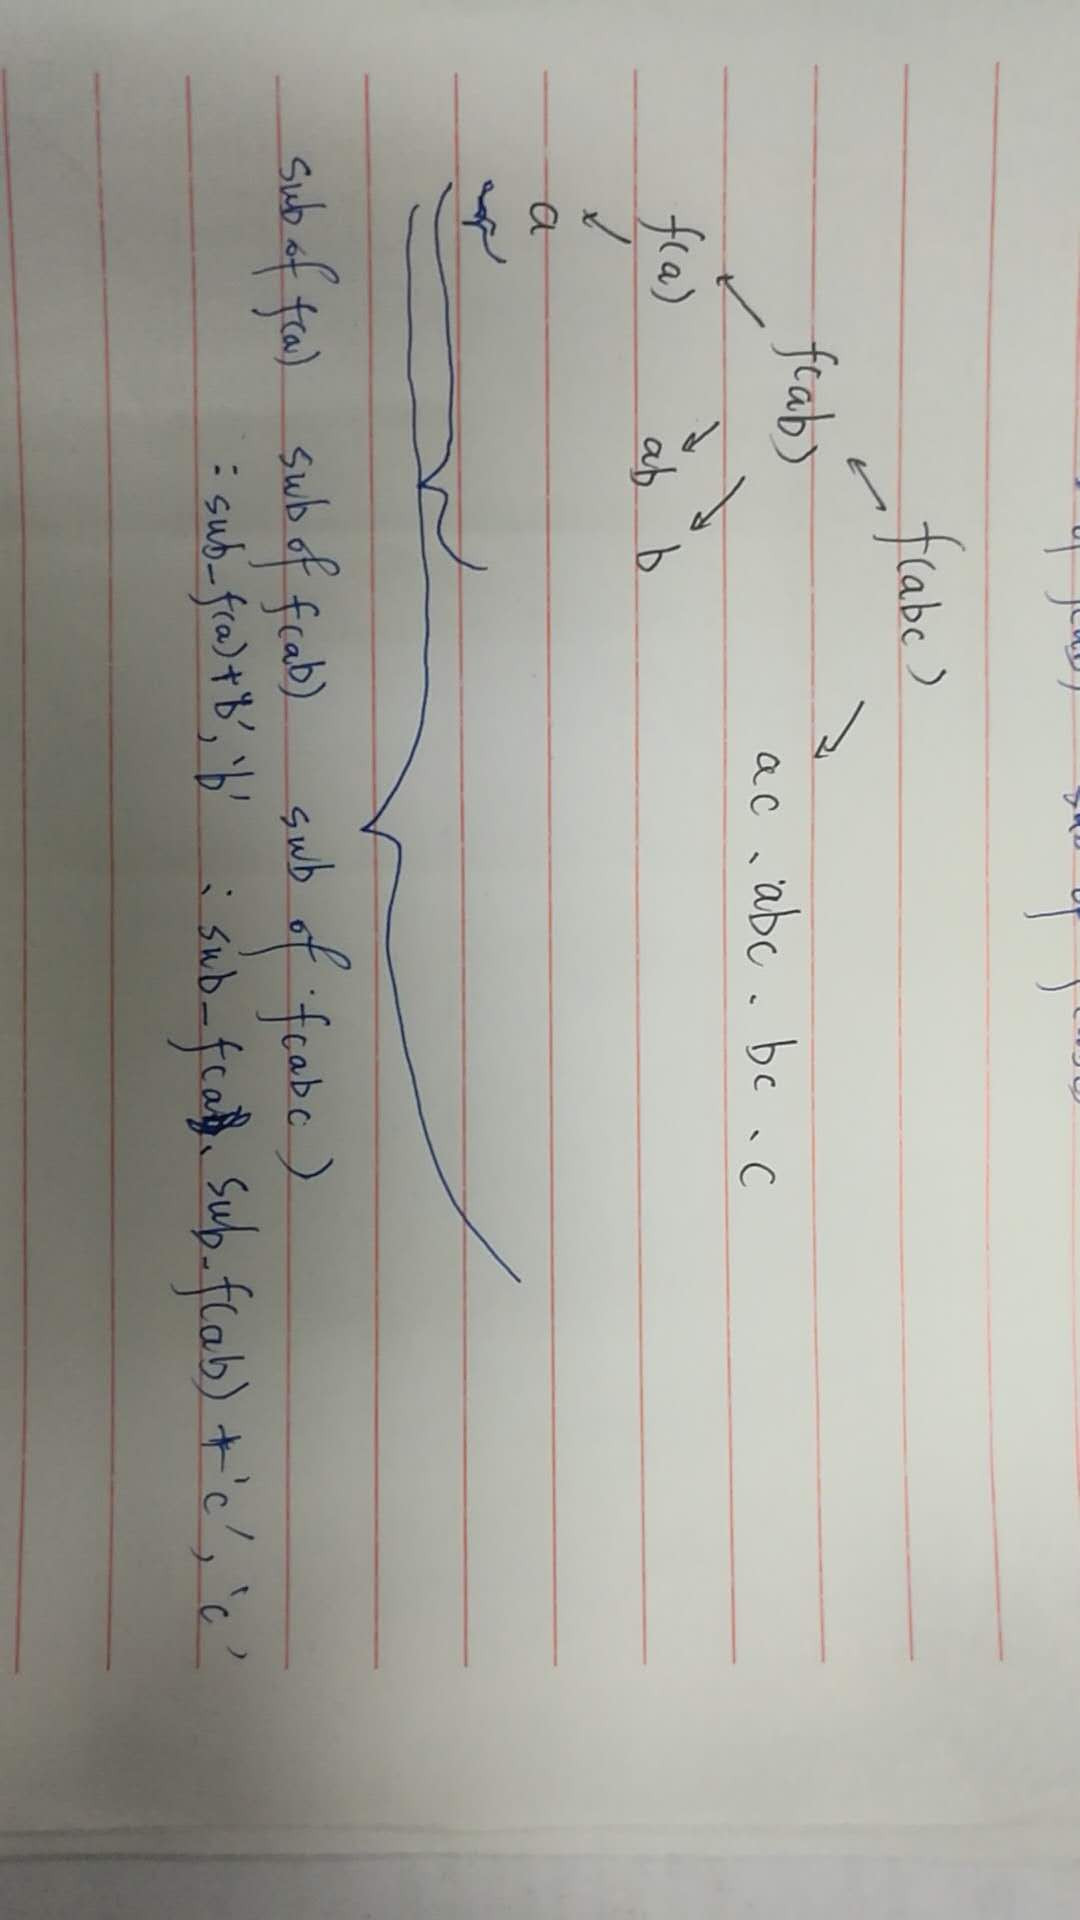 f(abc)
f(ab) ac、abc、bc、c
f(a) ab b
a
sub of f(a) sub of f(ab) sub of f(abc)
: sub_f(a)+'b', 'b' : sub_f(ab)、sub_f(ab)+'c', 'c'